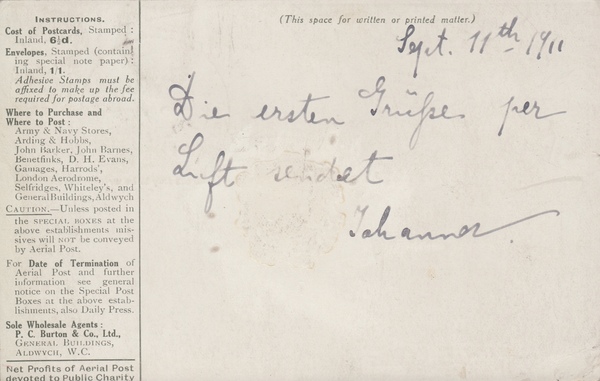 INSTRUCTIONS.
Cost of Postcards, Stamped :
Inland, 6½d.
Envelopes, Stamped (contain-
ing special note paper) :
Inland, 1/1.
Adhesive Stamps must be
affixed to make up the fee
required for postage abroad.
Where to Purchase and
Where to Post :
Army & Navy Stores,
Arding & Hobbs,
John Barker, John Barnes,
Benetfinks, D. H. Evans,
Gamages, Harrods',
London Aerodrome,
Selfridges, Whiteley's, and
General Buildings, Aldwych
CAUTION.—Unless posted in
the SPECIAL BOXES at the
above establishments mis-
sives will NOT be conveyed
by Aerial Post.
For Date of Termination of
Aerial Post and further
information see general
notice on the Special Post
Boxes at the above estab-
lishments, also Daily Press.
Sole Wholesale Agents :
P. C. Burton & Co., Ltd.,
GENERAL BUILDINGS,
ALDWYCH, W.C.
Net Profits of Aerial Post
devoted to Public Charity
(This space for written or printed matter.)
Sept. 11th 1911
Die ersten Grüße per
Luft sendet
Johannes.